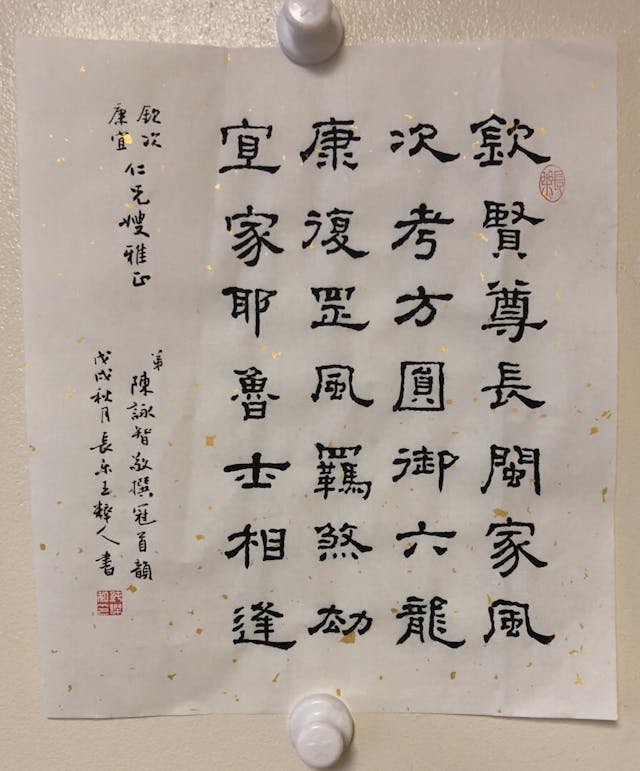 欽賢尊長閩家風
次考方圓御六龍
康復罡風羈煞劫
宜家耶魯士相逢
欽次
康宜
仁兄嫂雅正
弟
陳詠智敬撰冠首韻
戊戌秋月長樂王粹人書